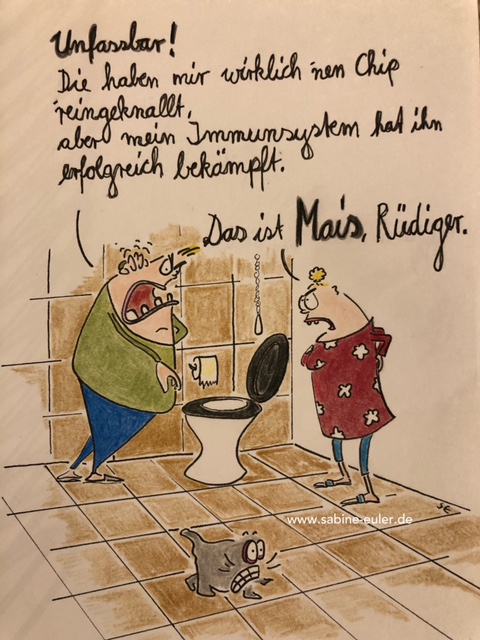 Unfassbar!
Die haben mir wirklich 'nen Chip
reingeknallt,
aber mein Immunsystem hat ihn
erfolgreich bekämpft.
Das ist Mais, Rüdiger.
SE
www.sabine-euler.de